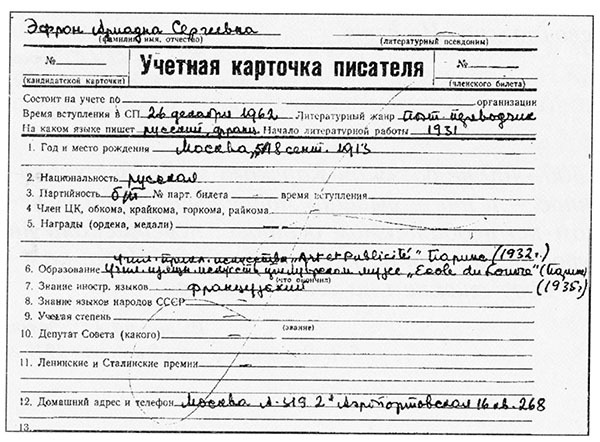 Эфрон Ариадна Сергеевна
(фамилия, имя, отчество) (литературный псевдоним)
№
(кандидатской карточки)
Учетная карточка писателя
№
(членского билета)
Состоит на учете по организации
Время вступления в СП 26 декабря 1962 Литературный жанр поэт. переводчик
На каком языке пишет русский, франц. Начало литературной работы 1931
1. Год и место рождения Москва, 5/18 сент. 1913
2. Национальность русская
3. Партийность б/п № парт. билета – время вступления –
4 Член ЦК, обкома, крайкома, горкома, райкома –
5. Награды (ордена, медали) –
Учил. прикл. искусства „Art et Publicité" Париж (1932 г.)
6. Образование Учил. изящн. искусств при Луврском музее „Ecole du Louvre" (Париж)
(что окончил) (1935 г)
7. Знание иностр. языков французский
8. Знание языков народов СССР –
9. Ученая степень –
(звание)
10. Депутат Совета (какого) –
11. Ленинские и Сталинские премии –
12. Домашний адрес и телефон Москва А-319 2я Аэропортовская 16 кв. 268
13.